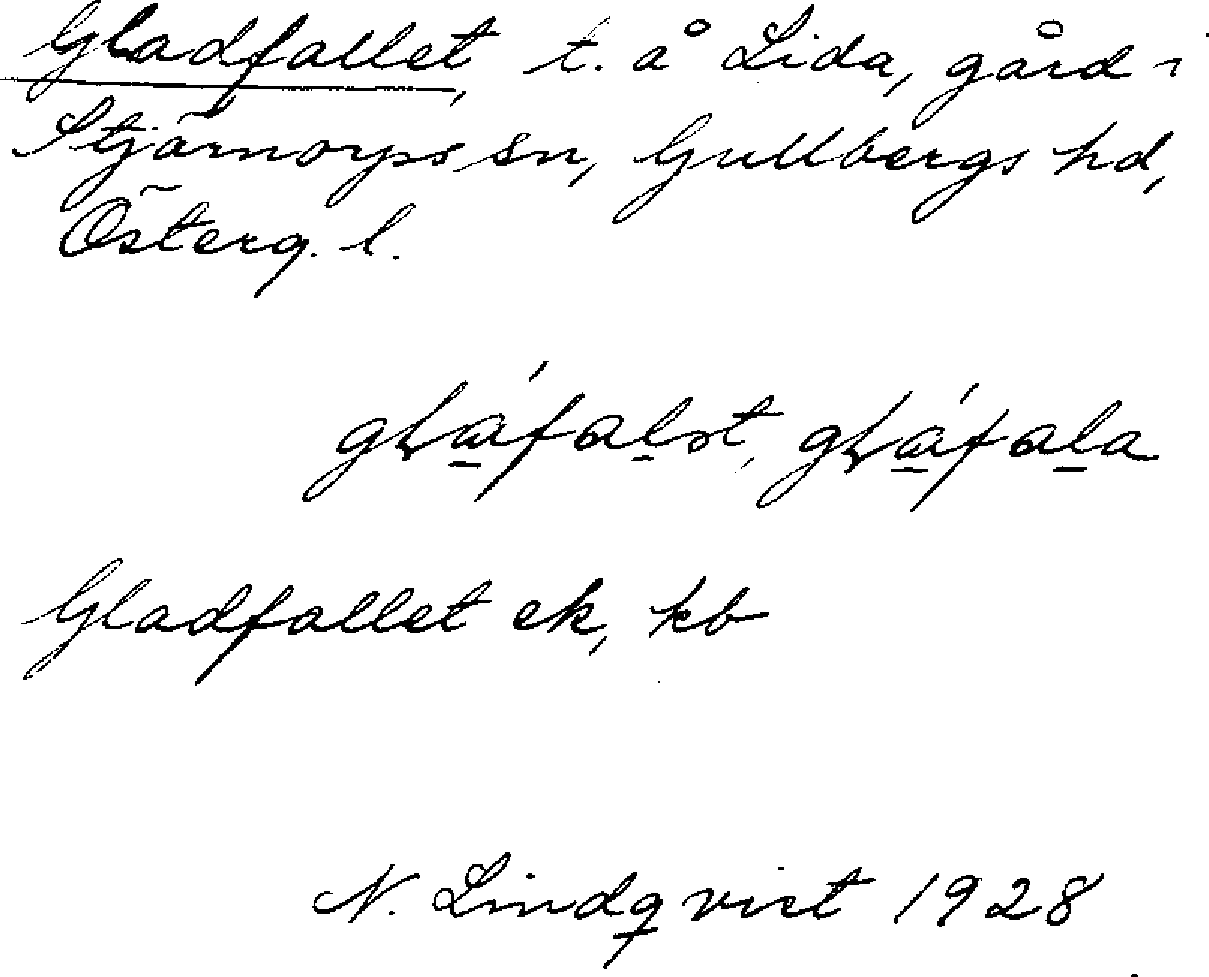 Gladfallet, t. å Lida, gård i
Stjärnorps sn, Gullbergs hd,
Österg. l.
Gladfallet ek, kb
N. Lindqvist 1928